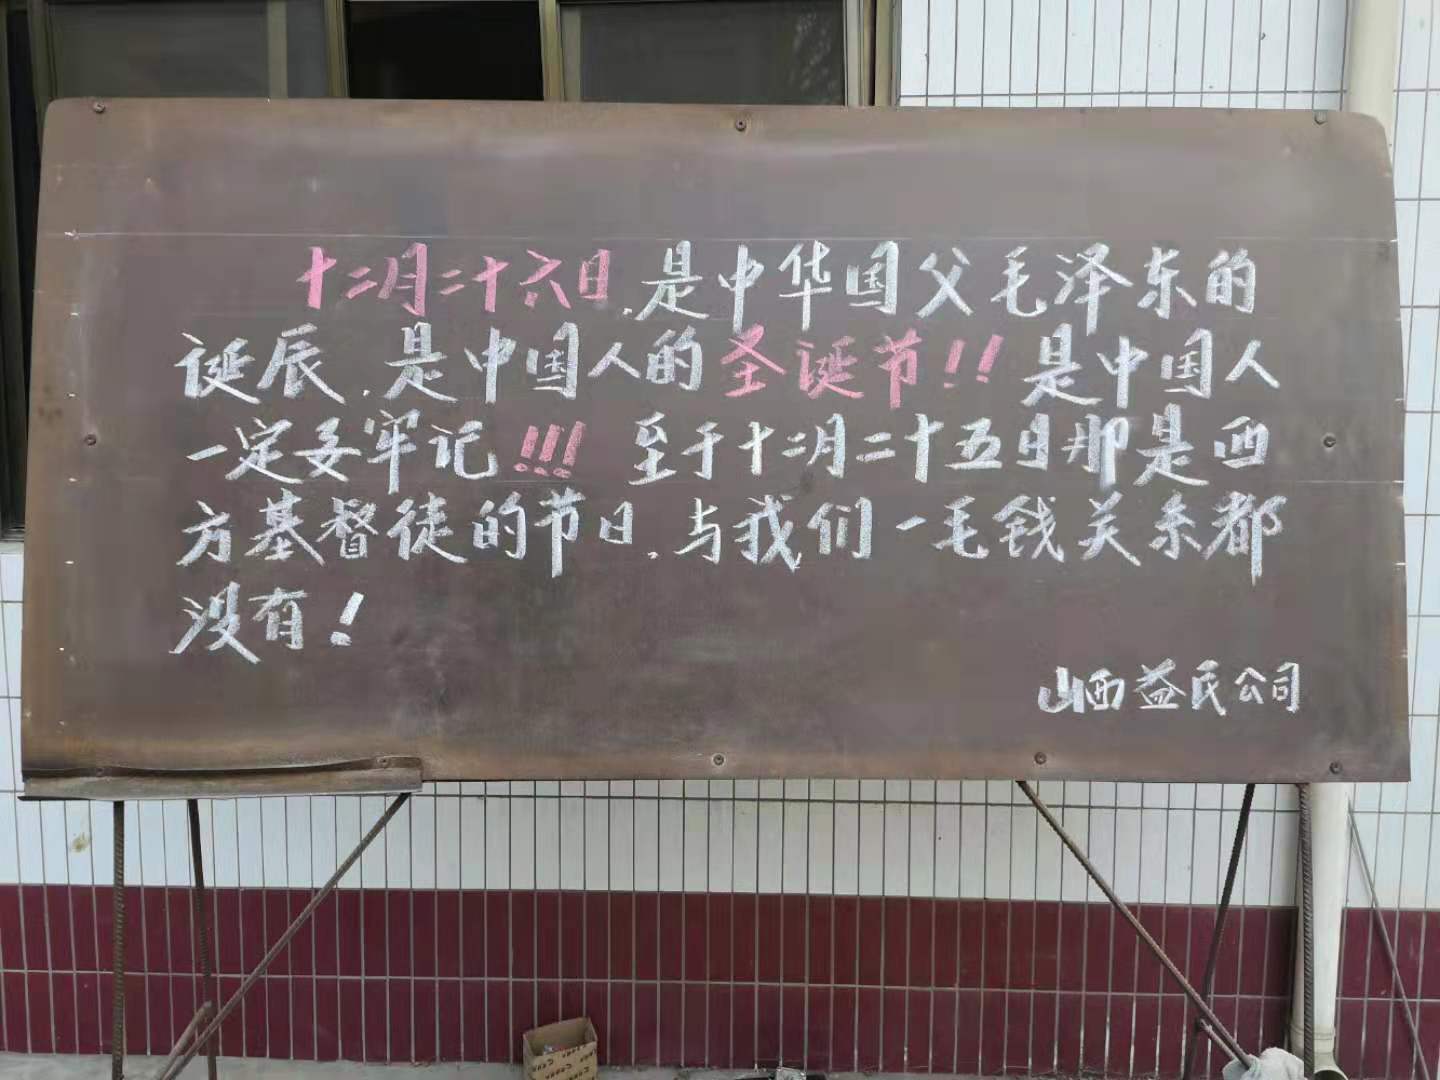 十二月二十六日,是中华国父毛泽东的
诞辰,是中国人的圣诞节!!是中国人
一定要牢记!!!至于十二月二十五日那是西
方基督徒的节日,与我们一毛钱关系都
没有!
山西益民公司